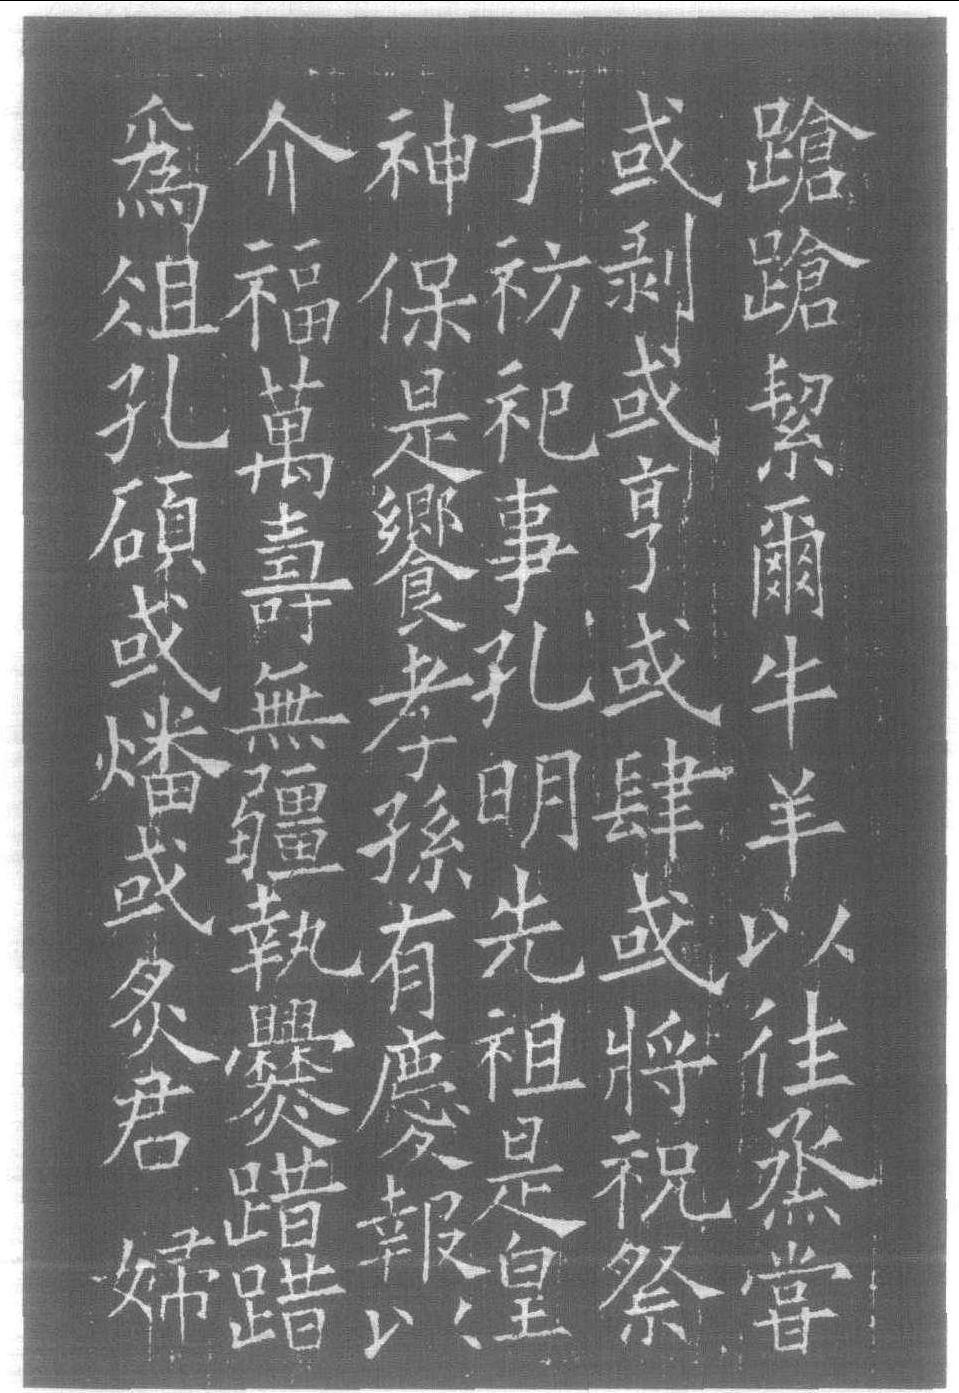 蹌蹌絜爾牛羊以往烝甞
或剥或亨或肆或將祝祭
于祊祀事孔明先祖是皇
神保是饗孝孫有慶報以
介福萬壽無疆執爨踖踖
爲俎孔碩或燔或炙君婦